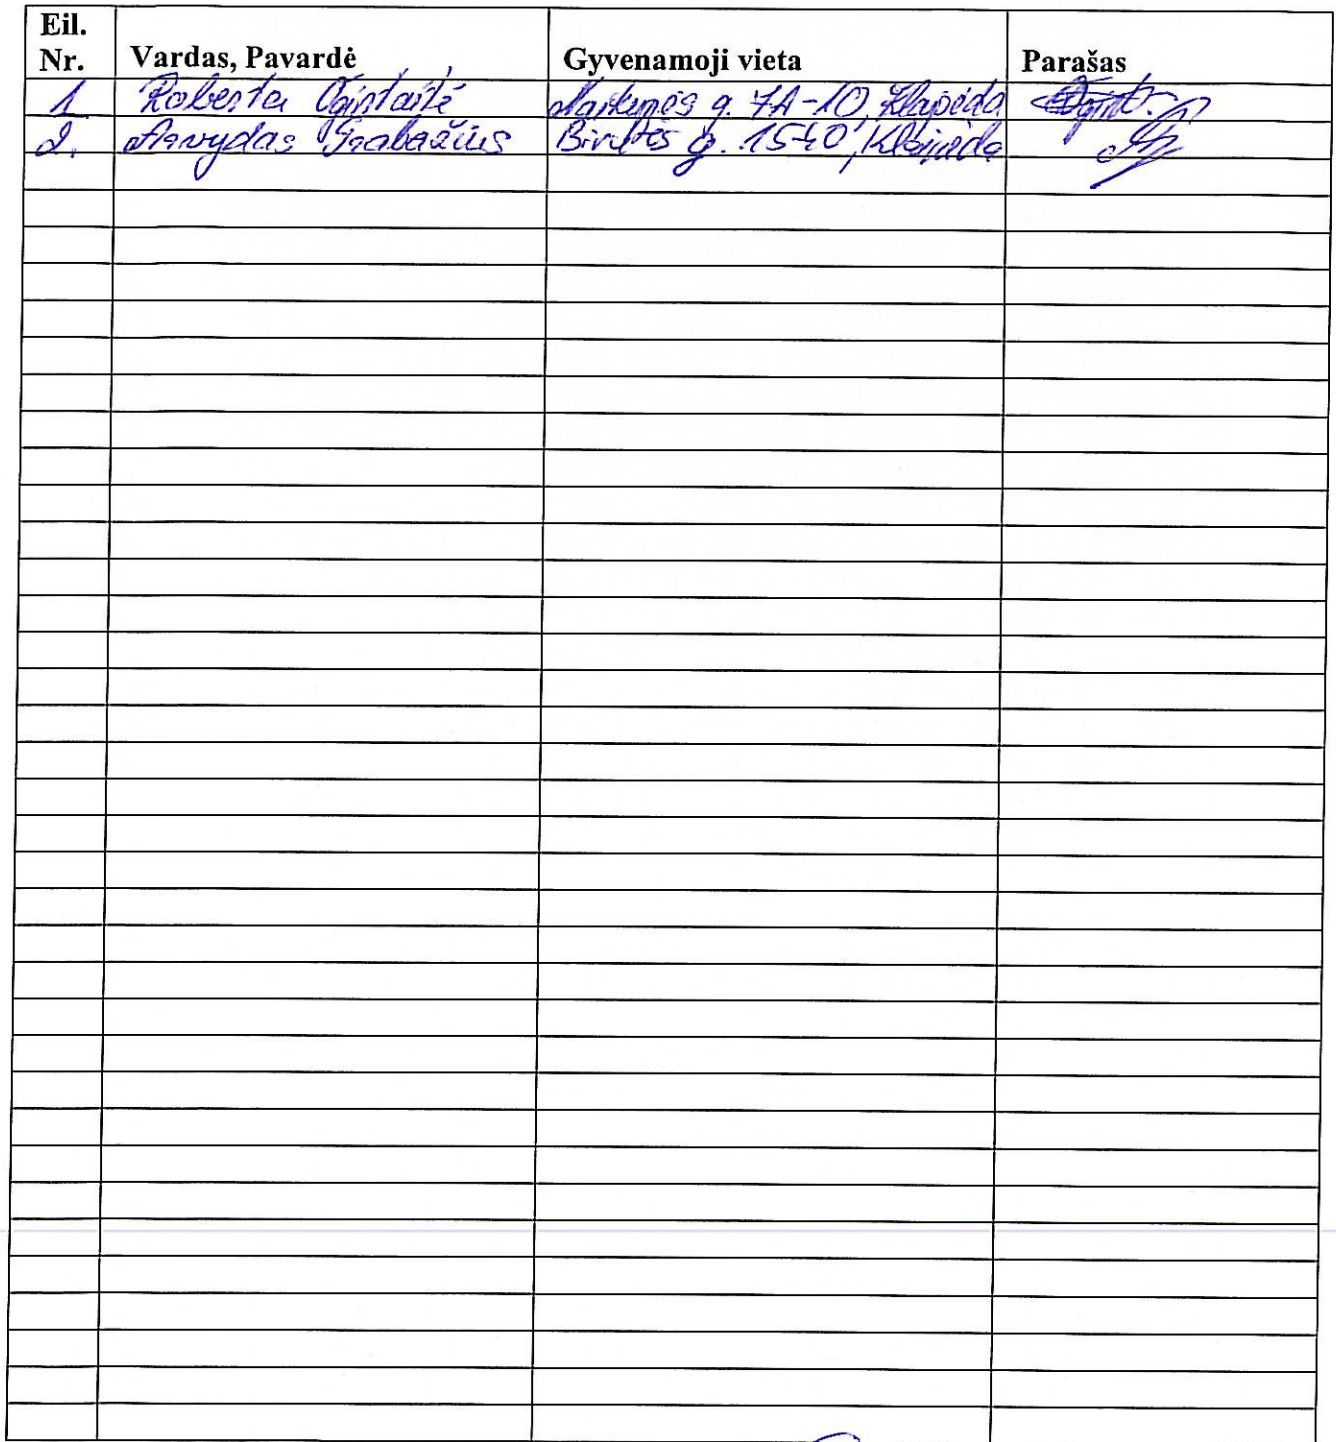 Eil. Nr. Vardas, Pavardė Gyvenamoji vieta Parašas
1. Roberta Ogintaitė g. 7A-10, Klaipėda
2. Arvydas Birutės g. 15-40, Klaipėda